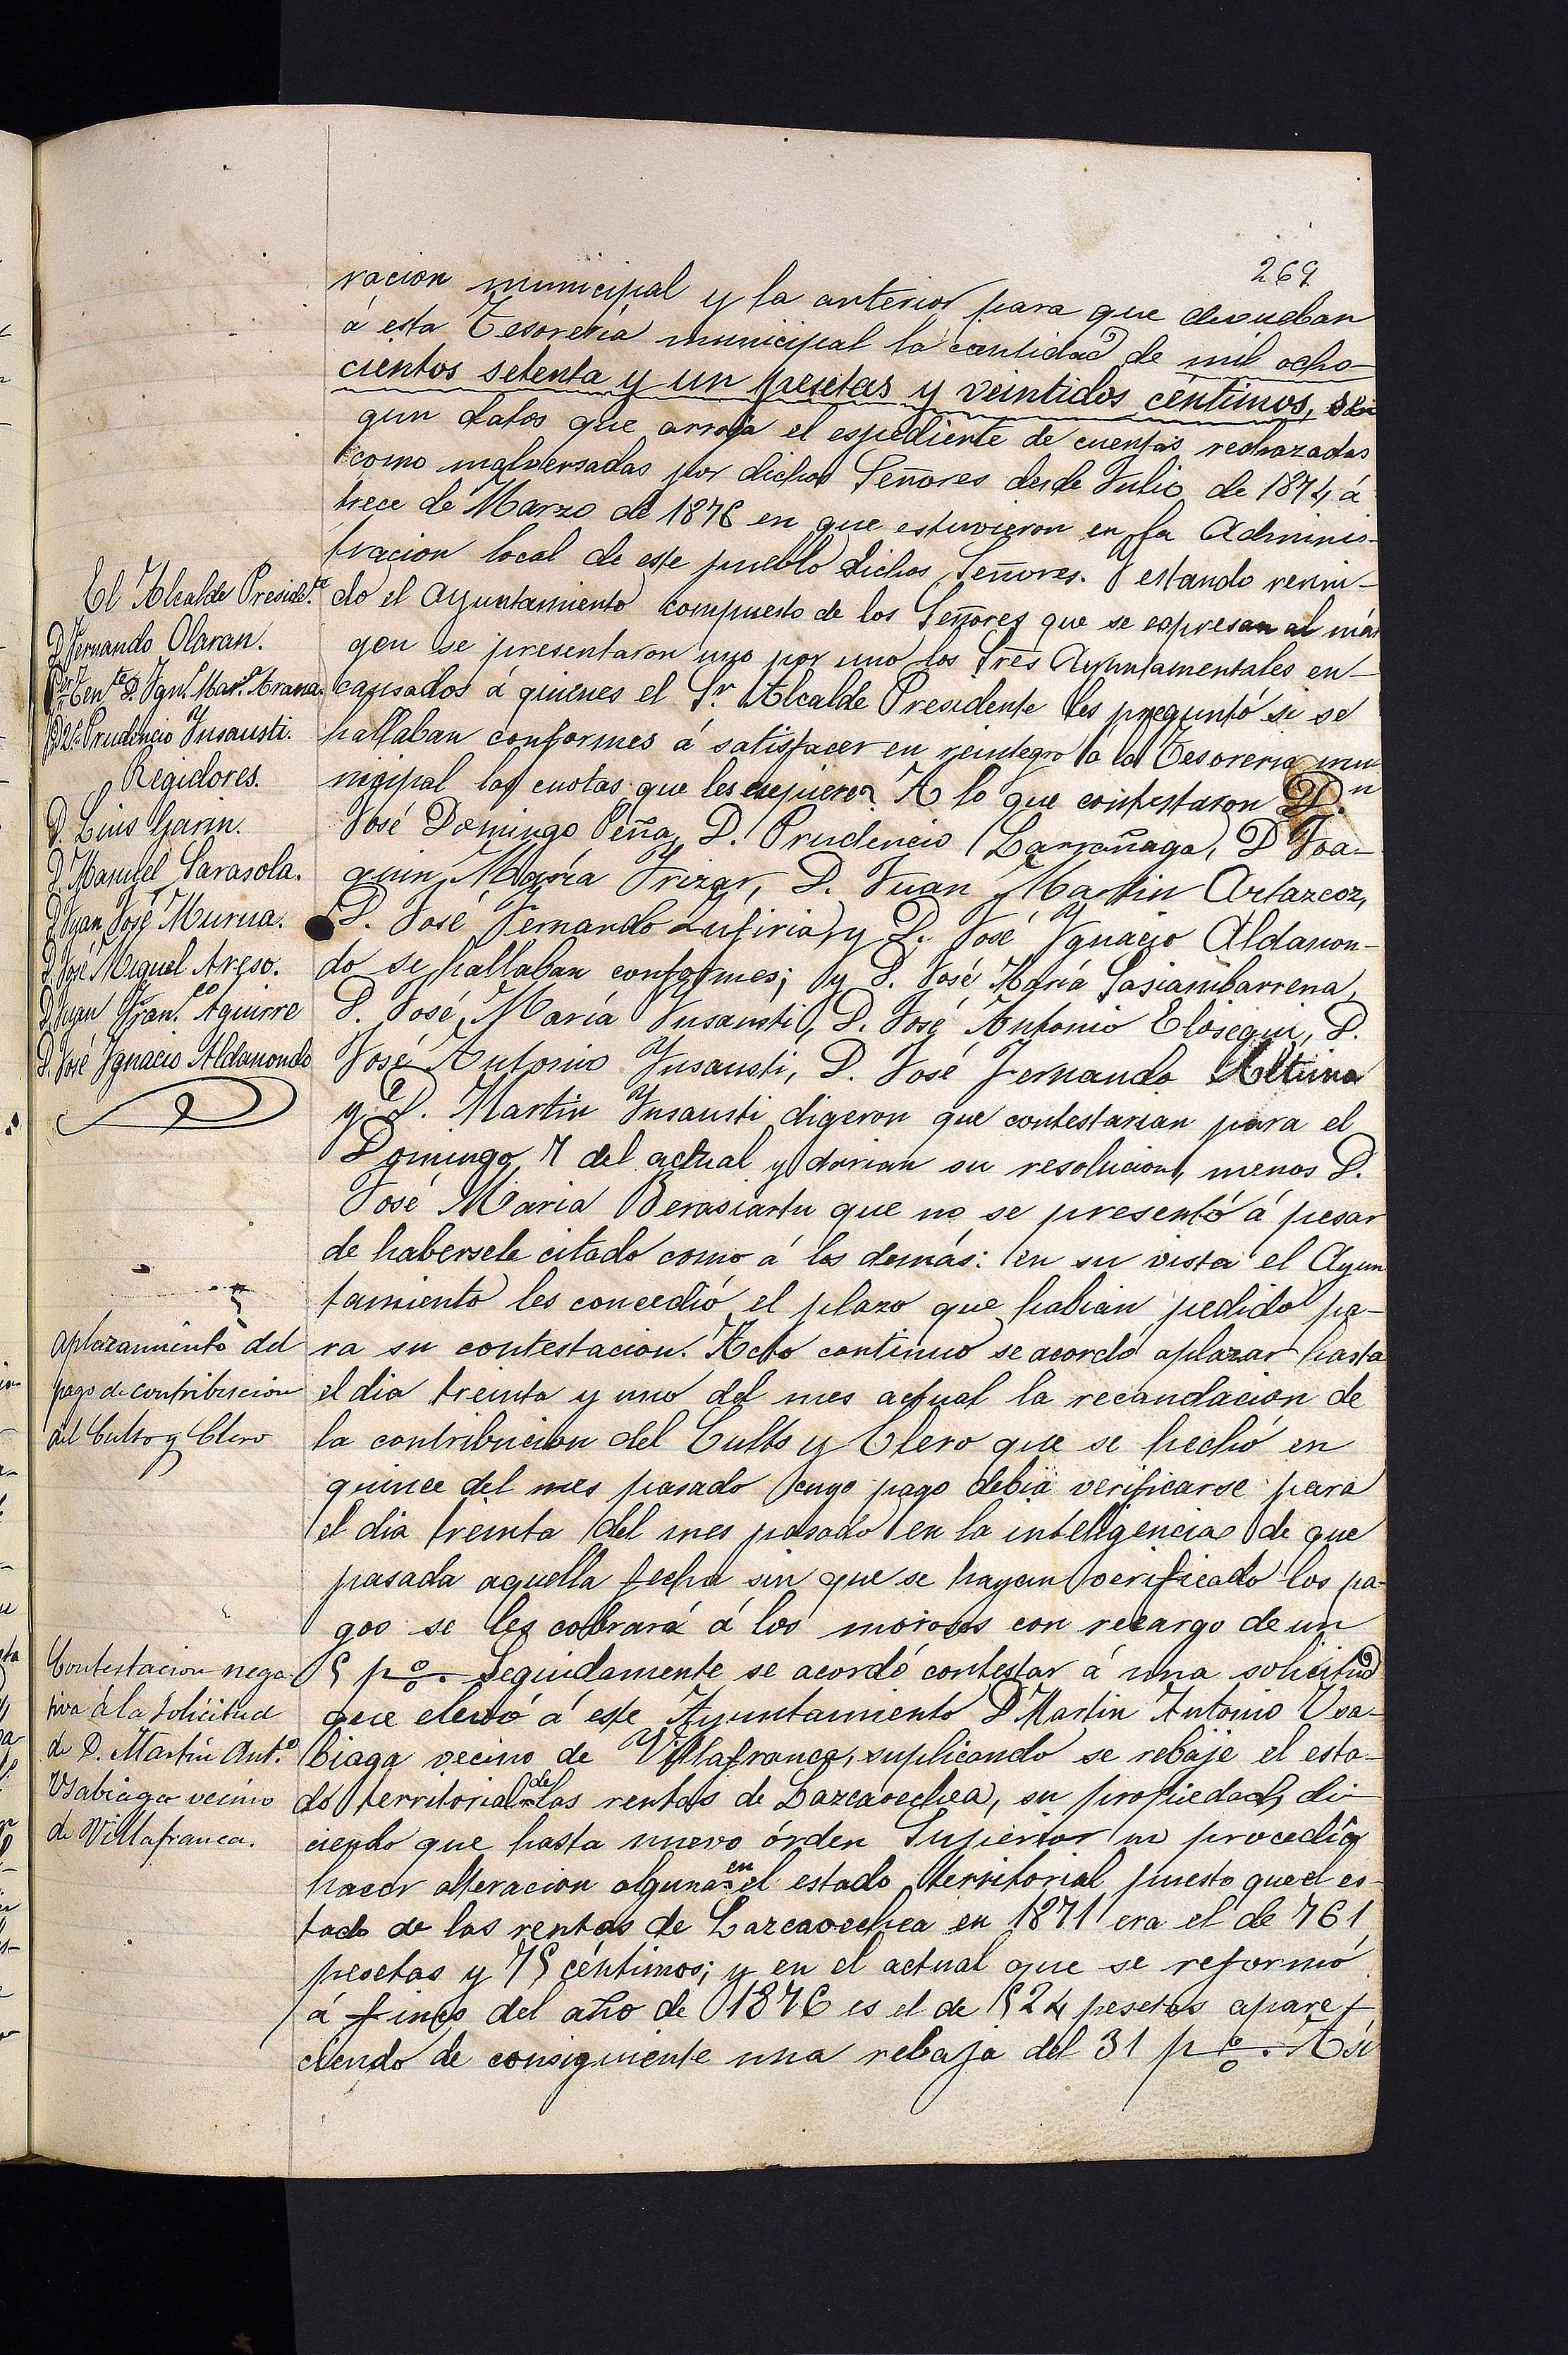 269
racion municipal y la anterior para que devuelban
á esta Tesorería municipal la cantidad de mil ocho-
cientos setenta y un pesetas y veintidos céntimos, se
gun datos que arroja el espediente de cuentas rechazadas
como malversadas por dichos Señores desde Julio de 1874 á
trece de Marzo de 1876 en que estuvieron en la Adminis-
tracion local de este pueblo dichos Señores. Y estando reuni-
do el Ayuntamiento compuesto de los Señores que se espresan al már
gen se presentaron uno por uno los Sres Ayuntamentales en-
causados á quienes el Sr. Alcalde Presidente les preguntó si se
hallaban conformes á satisfacer en reintegro á la Tesoreria mu
nicipal las cuotas que les cupiere. A lo que contestaron Dn
José Domingo Peña, D. Prudencio Larrañaga, D Joa-
quin María Yrizar, D. Juan Martin Artazcoz,
D. José Fernando Lufiria, y D. José Ygnacio Aldanon-
do se hallaban conformes; y D. José María Sasiambarrena,
D. José María Ynsausti, D. José Antonio Elosegui, D.
José Antonio Ynsausti, D. José Fernando Altuna
y D. Martin Ynsausti digeron que contestarian para el
Domingo 7 del actual y darian su resolucion, menos D.
José Maria Berasiartu que no se presentó á pesar
de habersele citado como á los demás: en su vista el Ayun
tamiento les concedió el plazo que habian pedido pa-
ra su contestacion. Acto continuo se acordó aplazar hasta
el dia treinta y uno del mes actual la recaudacion de
la contribucion del Culto y Clero que se hechó en
quince del mes pasado cuyo pago debia verificarse para
el dia treinta del mes pasado en la inteligencia de que
pasada aquella fecha sin que se hayan verificado los pa-
gos se les cobrará á los morosos con recargo de un
5 p%. Seguidamente se acordó contestar á una solicitud
que elevó á este Ayuntamiento D Martin Antonio Usa-
biaga vecino de Villafranca, suplicando se rebaje el esta-
do territorial de las rentas de Lazcaoechea, su propiedad, di-
ciendo que hasta nuevo órden Superior no procedía
hacer alteracion alguna en el estado territorial puesto que el es-
tado de las rentas de Lazcaoechea en 1871 era el de 761
pesetas y 75 céntimos; y en el actual que se reformó
á fines del año de 1876 es el de 524 pesetas apare-
ciendo de consiguiente una rebaja del 31 p%. Asi
El Alcalde Preside.te
D. Fernando Olaran.
1er Ten.te D. Ygn.º Mar.ª Arana
D 2º Prudencio Ynsausti.
Regidores.
D. Luis Garin.
D. Manuel Sarasola.
D. Juan José Murua.
D. José Miguel Areso.
D. Juan Fran.co Aguirre
D. José Ygnacio Aldanondo
Aplazamiento del
pago de contribucion
del Culto y Clero
Contestacion nega-
tiva á la solicitud
de D. Martin Ant.º
Usabiaga vecino
de Villafranca.